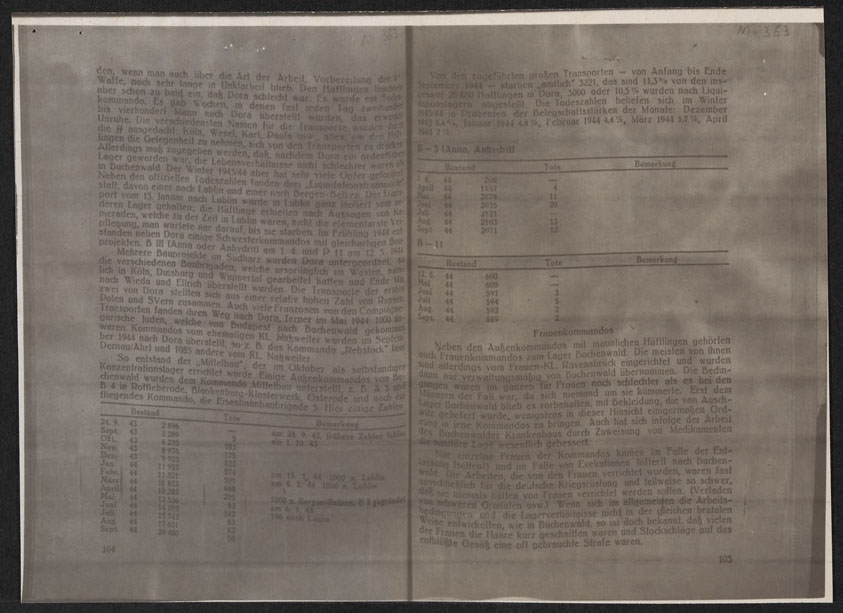 M-363
den, wenn man auch über die Art der Arbeit, Vorbereitung der
Waffe, noch sehr lange in Unklarheit blieb. Den Häftlingen leuchtete
aber schon zu bald ein, daß Dora schlecht war. Es wurde ein Todes-
kommando. Es gab Wochen, in denen fast jeden Tag zweihundert
bis vierhundert Mann nach Dora überstellt wurden, das erweckte
Unruhe. Die verschiedensten Namen für die Transporte wurden durch
die SS ausgedacht: Köln, Wesel, Karl, Paula usw., alles, um den Häft-
lingen die Gelegenheit zu nehmen, sich von den Transporten zu drücken.
Allerdings muß zugegeben werden, daß, nachdem Dora ein ordentliches
Lager geworden war, die Lebensverhältnisse nicht schlechter waren als
in Buchenwald. Der Winter 1943/44 aber hat sehr viele Opfer gefordert.
Neben den offiziellen Todeszahlen fanden drei „Liquidationstransporte"
statt, davon einer nach Lublin und einer nach Bergen-Belsen. Der Trans-
port vom 15. Januar nach Lublin wurde in Lublin ganz isoliert vom an-
deren Lager gehalten; die Häftlinge erhielten nach Aussagen von Ka-
meraden, welche zu der Zeit in Lublin waren, nicht die elementarste Ver-
pflegung, man wartete nur darauf, bis sie starben. Im Frühling 1944 ent-
standen neben Dora einige Schwesterkommandos mit gleichartigen Bau-
projekten. B III (Anna oder Anhydrit) am 1. 4. und B 11 am 12. 5. 1944
Mehrere Bauprojekte im Südharz wurden Dora untergeordnet, so
die verschiedenen Baubrigaden, welche ursprünglich im Westen, näm-
lich in Köln, Duisburg und Wuppertal gearbeitet hatten und Ende Mai
nach Wieda und Ellrich überstellt wurden. Die Transporte der ersten
zwei von Dora stellten sich aus einer relativ hohen Zahl von Russen,
Polen und SVern zusammen. Auch viele Franzosen von den Compiègne-
Transporten fanden ihren Weg nach Dora, ferner im Mai 1944: 1000 un-
garische Juden, welche von Budapest nach Buchenwald gekommen
waren. Kommandos vom ehemaligen KL. Natzweiler wurden im Septem-
ber 1944 nach Dora überstellt, so z. B. das Kommando „Rebstock" (aus
Dernau/Ahr) und 1085 andere vom KL. Natzweiler.
So entstand der „Mittelbau", der im Oktober als selbständiges
Konzentrationslager errichtet wurde. Einige Außenkommandos von Bu-
chenwald wurden dem Kommando Mittelbau unterstellt: z. B.
B 4 in Rottleberode, Blankenburg-Klosterwerk, Osterode und auch ein
fliegendes Kommando, die Eisenbahnbaubrigade 5. Hier einige Zahlen.
Bestand Tote Bemerkung
24. 9. 43 2 896 am 24. 9. 43, frühere Zahlen fehlen
Sept. 43 3 289 am 1. 10. 43
Okt. 43
Nov. 43
Dez. 43
Jan. 44 am 15. 1. 44 1000 n. Lublin
Febr. 44 am 6. 2. 44 1000 n. Lublin
März 44
April 44 1000 n. Bergen-Belsen
Mai 44
Juni 44
Juli 44
Aug. 44
Sept. 44
104
M-363
Von den zugeführten großen Transporten — von Anfang bis Ende
September 1944 — starben „amtlich" 3221, das sind 11,5% von den ins-
gesamt 28 800 Häftlingen in Dora. 3000 oder 10,5% wurden nach Liqui-
dationslagern abgestellt. Die Todeszahlen beliefen sich im Winter
1943/44 in Prozenten der Belegschaftsstärken der Monate: Dezember
1943 5,4%, Januar 1944 4,8%, Februar 1944 4,4%, März 1944 5,1%, April
1944 2%.
B — 3 (Anna, Anhydrit)
Bestand Tote Bemerkung
1. 4. 44 200 —
April 44 1157 4
Mai 44 2029 11
Juni 44 2035 20
Juli 44 2121 —
Aug. 44 2103 12
Sept. 44 2071 12
B — 11
Bestand Tote Bemerkung
12. 5. 44 600 —
Mai 44 600 —
Juni 44 597 3
Juli 44 594 5
Aug. 44 592 2
Sept. 44 589 2
Frauenkommandos
Neben den Außenkommandos mit männlichen Häftlingen gehörten
auch Frauenkommandos zum Lager Buchenwald. Die meisten von ihnen
sind allerdings vom Frauen-KL. Ravensbrück eingerichtet und wurden
dann nur verwaltungsmäßig von Buchenwald übernommen. Die Bedin-
gungen waren im ganzen für Frauen noch schlechter als es bei den
Männern der Fall war, da sich niemand um sie kümmerte. Erst dem
Lager Buchenwald blieb es vorbehalten, mit Bekleidung, die von Ausch-
witz geliefert wurde, wenigstens in dieser Hinsicht einigermaßen Ord-
nung in jene Kommandos zu bringen. Auch hat sich infolge der Arbeit
des Buchenwalder Krankenbaus durch Zuweisung von Medikamenten
die sanitäre Lage wesentlich gebessert.
Nur einzelne Frauen der Kommandos kamen im Falle der Ent-
lassung (selten) und im Falle von Exekutionen (öfter) nach Buchen-
wald. Die Arbeiten, die von den Frauen verrichtet wurden, waren fast
ausschließlich für die deutsche Kriegsrüstung und teilweise so schwer,
daß sie niemals hätten von Frauen verrichtet werden sollen. (Verladen
von schweren Granaten usw.) Wenn sich im allgemeinen die Arbeits-
bedingungen und die Lagerverhältnisse nicht in der gleichen brutalen
Weise entwickelten, wie in Buchenwald, so ist doch bekannt, daß vielen
der Frauen die Haare kurz geschnitten waren und Stockschläge auf das
entblößte Gesäß eine oft gebrauchte Strafe waren.
105